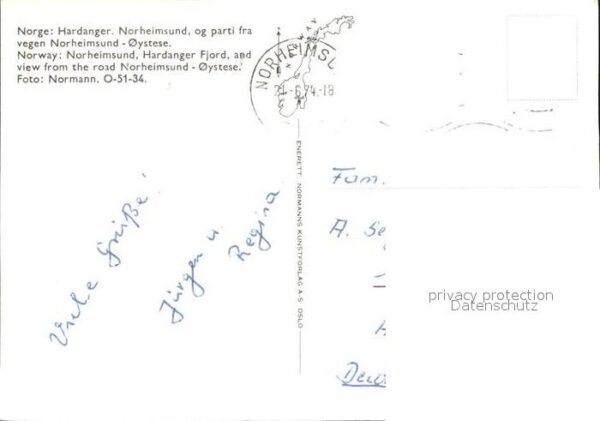 Norge: Hardanger. Norheimsund, og parti fra
vegen Norheimsund - Øystese.
Norway: Norheimsund, Hardanger Fjord, and
view from the road Norheimsund - Øystese.
Foto: Normann. O-51-34.
NORHEIMSU
21.-6.74.-18
ENERETT: NORMANNS KUNSTFORLAG A-S OSLO
Viele Grüße!
Jürgen u.
Regina
Fam.
A. Se
privacy protection
Datenschutz